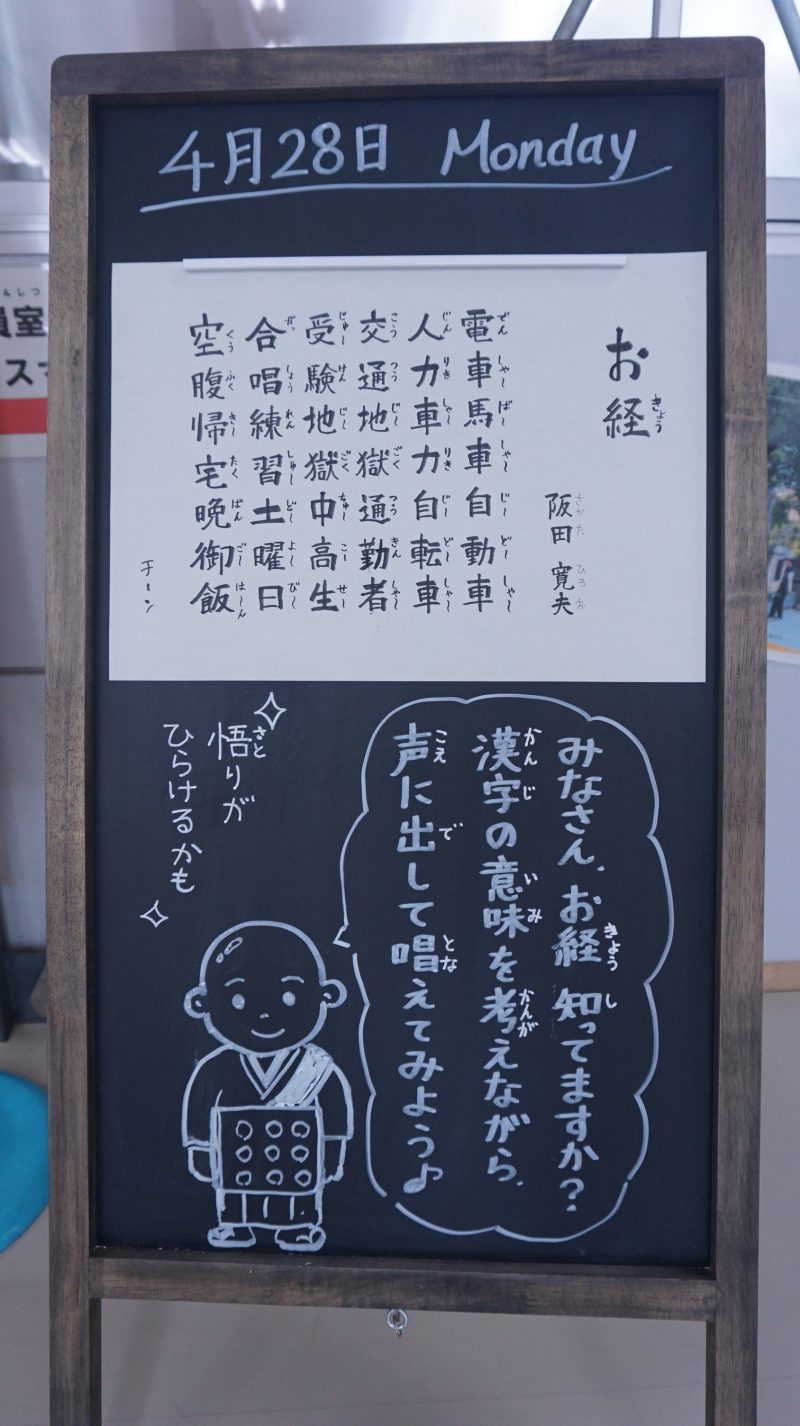 4月28日 Monday
お経
きょう
阪田 寛夫
さかた ひろお
電車馬車自動車
でん しゃー ばー しゃー じー どー しゃー
人力車力自転車
じん りき しゃー りき じー どー しゃー
交通地獄通勤者
こう つう じー ごく つう きん しゃー
受験地獄中高生
じゅー けん じー ごく ちゅー こー せー
合唱練習土曜日
がっ しょう れん しゅー どー よー びー
空腹帰宅晩御飯
くう ふく きー たく ばん ごー はーん
チーン
みなさん、お経 知ってますか?
きょう し
漢字の意味を考えながら、
かんじ いみ かんが
声に出して唱えてみよう♪
こえ で とな
悟りが
さと
ひらけるかも
んしつ
員室